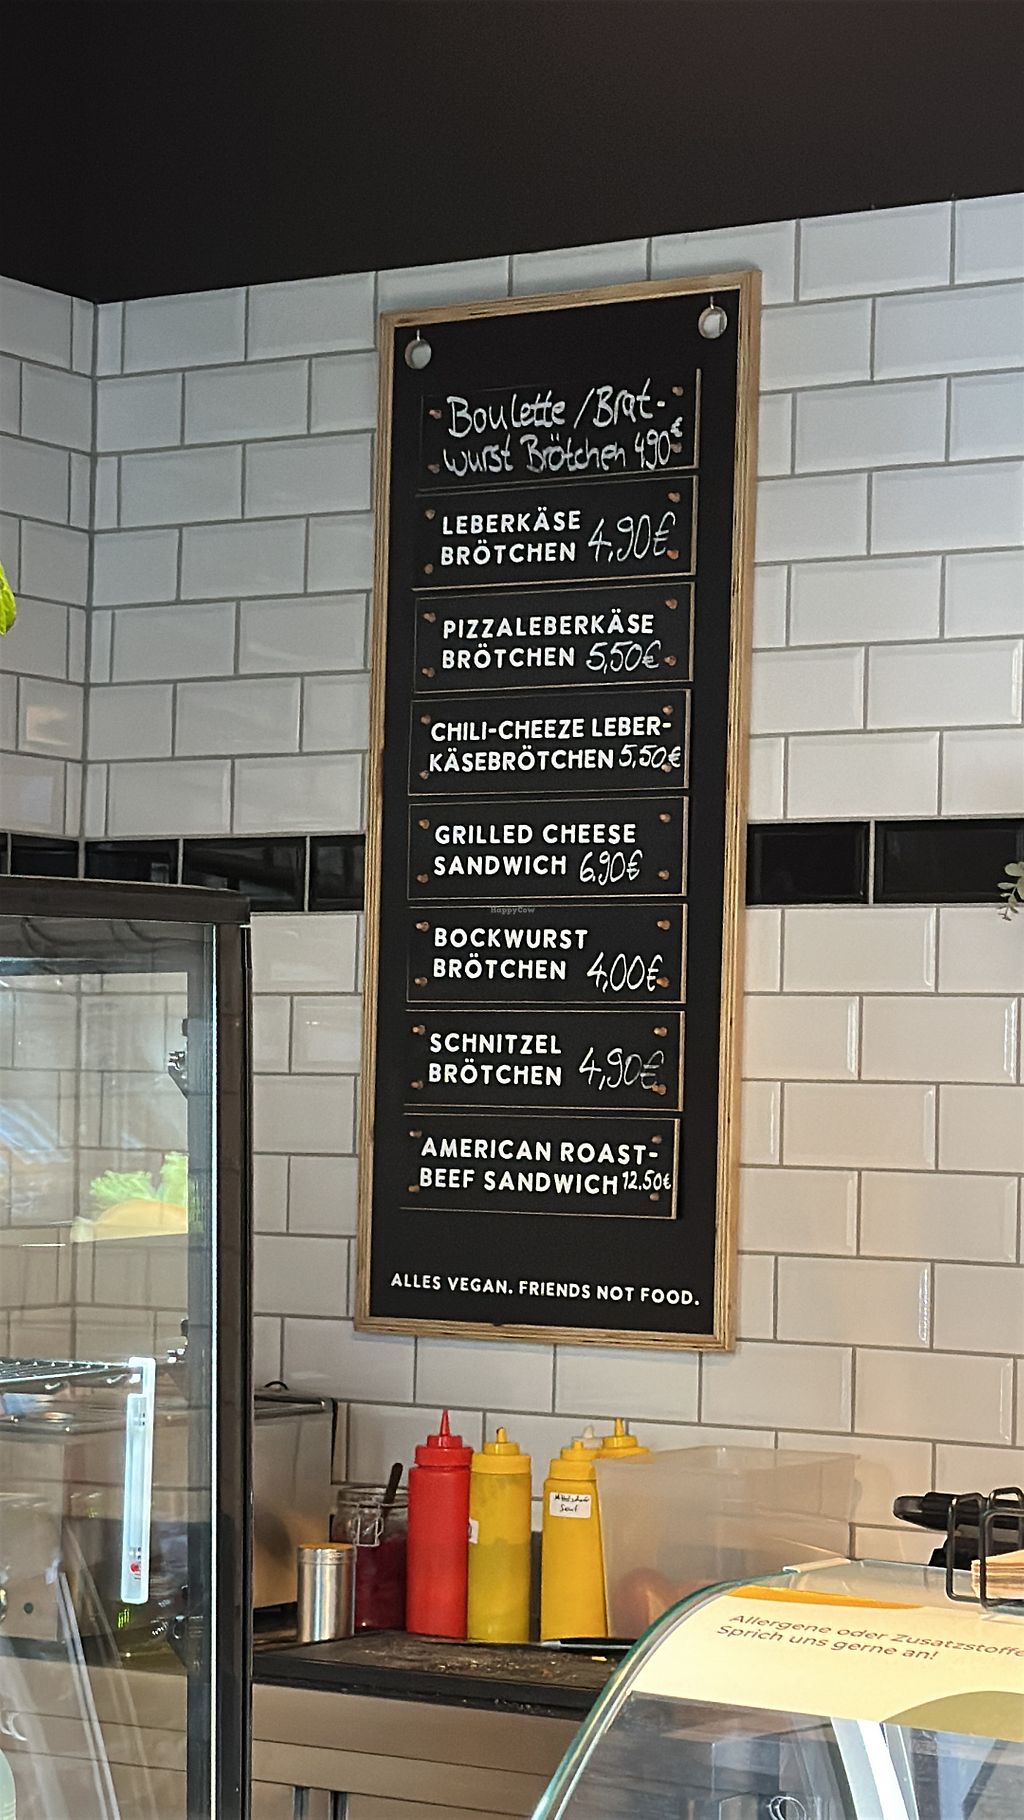 Boulette / Brat-
wurst Brötchen 4,90€
LEBERKÄSE
BRÖTCHEN 4,90€
PIZZALEBERKÄSE
BRÖTCHEN 5,50€
CHILI-CHEEZE LEBER-
KÄSEBRÖTCHEN 5,50€
GRILLED CHEESE
SANDWICH 6,90€
HappyCow
BOCKWURST
BRÖTCHEN 4,00€
SCHNITZEL
BRÖTCHEN 4,90€
AMERICAN ROAST-
BEEF SANDWICH 12.50€
ALLES VEGAN. FRIENDS NOT FOOD.
Senf
Allergene oder Zusatzstoffe
Sprich uns gerne an!